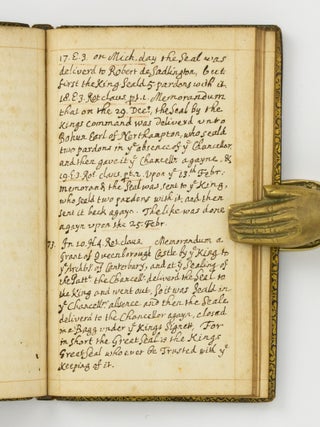 17. E.3. on Mich. day the Seal was
deliverd to Robert de Sadlington, but
first the King Seald 5 pardons with it.
18. E.3. Rot claus. pt. 1. Memorandum
that on the 29. Decr. the Seal by the
Kings Command was deliverd unto
Bohun Earl of Northampton, who seald
two pardons in ye absence of ye Chancelor
and then gave it ye Chancelr. agayne. &
19. E.3. Rot claus. pt. 2. Upon ye 18th Febr.
memoran: the Seal was, sent to ye King,
who seald two pardons with it, and then
sent it back agayn. The like was done
agayn upon the 25. Febr.
In 10. H.4. Rot. claus. Memorandum a
Grant of Queenborough Castle by ye King to
ye Archbp. of Canterbury, and at ye Sealing of
ye Patt. the Chancelr. deliverd the Seal to
the King and went out, So it was Seald in
ye Chancelrs. absence and then the Seale
deliverd to the Chancellor agayn, closed
in a Bagg under ye Kings Signett. For
in short the Great Seal is the Kings
Great Seal who ever be Trusted with ye
keeping of it.